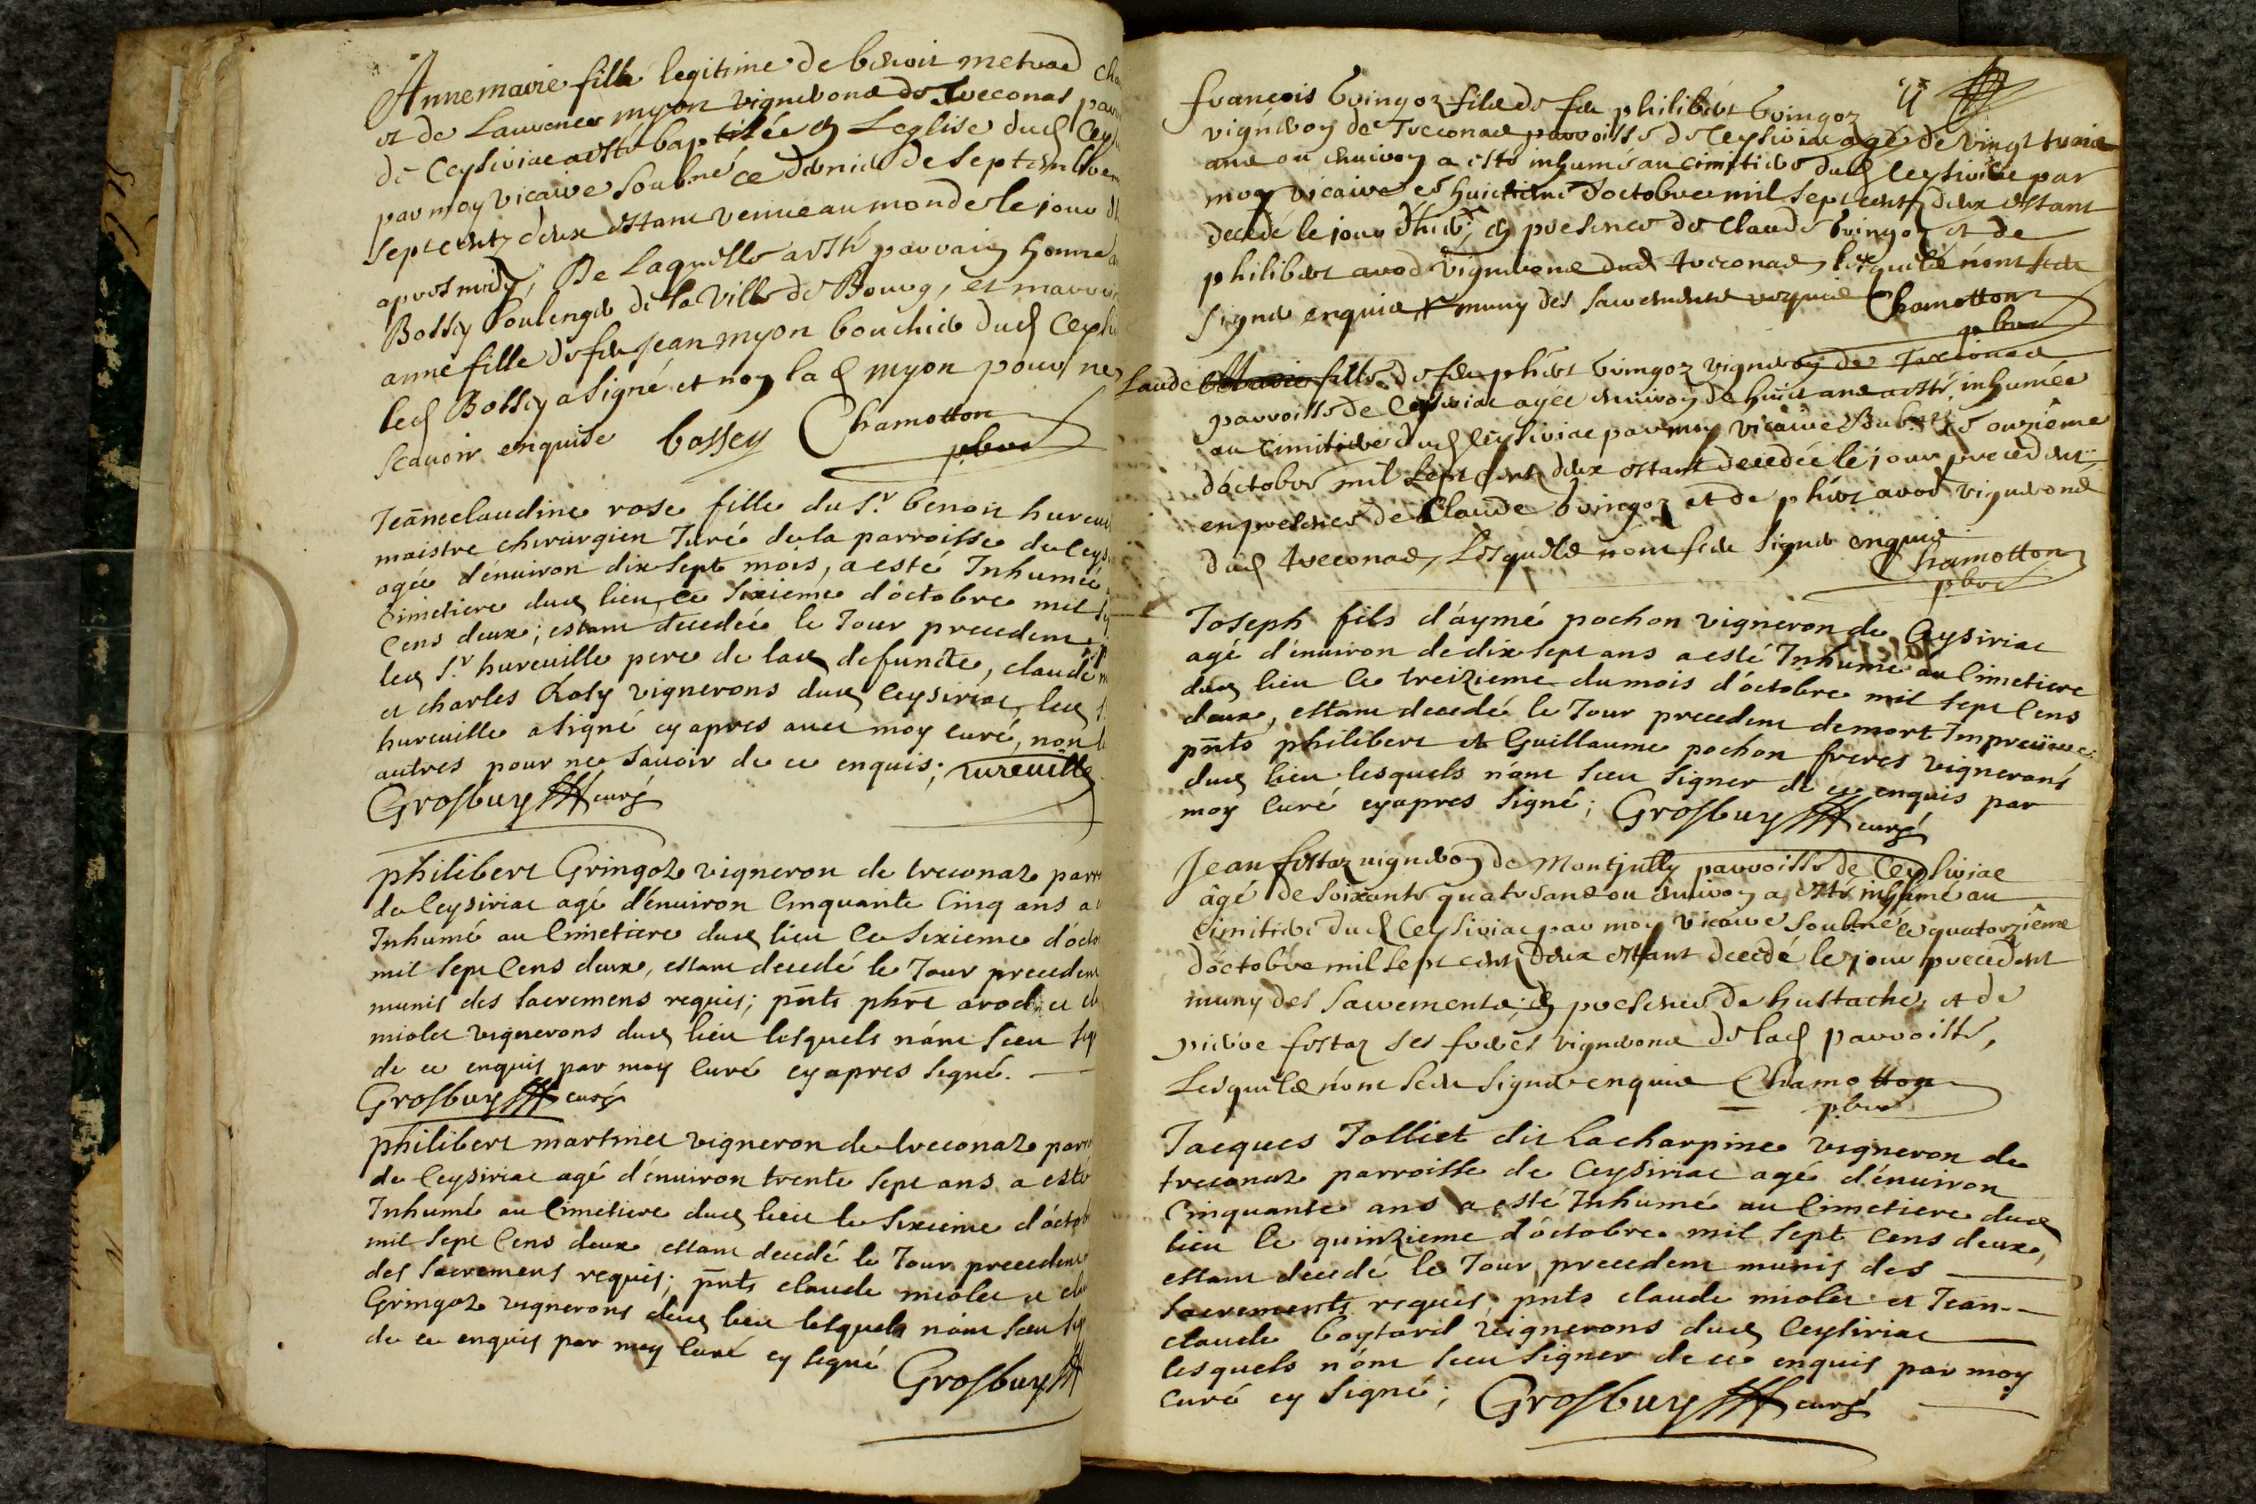 Annemarie fille legitime de benoit metrad
et de Laurence myon vignerons de Treconas
de Ceysiriac a esté baptisée en Leglise dud
par moy vicaire soubné ce dernier de septembre
sept centz deux estant venue au monde le jour
apres midy, De Laquelle a esté parrain honne
Bossey boulenger de la Ville de Bourg, et
anne fille de feu jean myon bouchier dud
led Bossey a signé et non la d myon pour ne
scavoir enquise bossey Chamotton
pbre
Jeanneclaudine rose fille du Sr. benoit
maistre chirurgien Juré de la parroisse de
agée d'énuiron dix sept mois, a esté Inhumée
Cimetiere dud lieu ce sixieme d'óctobre mil
Cens deux; estant decedée le Jour precedent
led Sr. hureuille pere de lad defuncte, claude
et charles Roly vignerons dud Ceysiriac, led
hureuille a signé cy apres auec moy curé, non
autres pour ne sauoir de ce enquis; hureuille
Grosbuy curé
philibert Gringoz vigneron de treconaz
de Ceysiriac agé d'énuiron Cinquante Cinq ans
Inhumé au Cimetiere dud lieu ce sixieme
mil sept Cens deux, estant decedé le Jour precedent
munis des sacremens requis; pnts phrt arod et
miolet vignerons dud lieu lesquels n'ónt sceu
de ce enquis par moy Curé cy apres signé.
Grosbuy curé
philibert martinet vigneron de treconaz
de Ceysiriac agé d'énuiron trente sept ans a esté
Inhumé au Cimetiere dud lieu le sixieme
mil sept Cens deux estant decedé le Jour precedent
des sacremens requis; pnts claude miolet et
Gringoz vignerons dud lieu lesquels n'ónt sceu
de ce enquis par moy Curé cy signé Grosbuy
françois Gringoz filz de feu philibert Gringoz
vigneron de Treconas parroisse de Ceysiriac agé de vingt trois
ans ou enuiron a esté inhumé au cimitiere dud Ceysiriac par
moy vicaire ce huictieme d'octobre mil sept centz deux estant
decedé le jour en presence de Claude Gringoz et de
philibert arod vignerons dud treconas, lesquelz n'ont sceu
signer enquis, muny des sacrements requis Chamotton
pbre
Claude fille de feu phert Gringoz vigneron de Treconas
parroisse de Ceysiriac agée enuiron de huit ans a esté inhumée
au cimitiere dud Ceysiriac par moy vicaire soubné ce onzieme
d'octobre mil sept cent deux estant decedée le jour precedent
en presence de Claude Gringoz et de phert arod vignerons
dud treconas, lesquelz n'ont sceu signer enquis
Chamotton
pbre
Joseph fils d'áymé pochon vigneron de Ceysiriac
agé d'énuiron de dix sept ans a esté Inhumé au Cimetiere
dud lieu ce treizieme du mois d'óctobre mil sept Cens
deux, estant decedé le Jour precedent de mort Impreueue;
pnts philibert et Guillaume pochon freres vignerons
dud lieu lesquels n'ónt sceu signer de ce enquis par
moy Curé cy apres signé; Grosbuy curé
Jean fostaz vigneron de Montjully parroisse de Ceysiriac
âgé de soixante quatre ans ou enuiron a esté inhumé au
Cimitiere dud Ceysiriac par moy vicaire soubné ce quatorzieme
d'octobre mil sept centz deux estant decedé le jour precedent
muny des sacrements; en presence de hustache et de
pierre fostaz ses freres vignerons de lad parroisse,
Lesquelz n'ont sceu signer enquis Chamotton
pbre
Jacques Jolliet dit Lacharpine vigneron de
treconaz parroisse de Ceysiriac agé d'énuiron
Cinquante ans a esté Inhumé au Cimetiere dud
lieu ce quinzieme d'óctobre mil sept Cens deux,
estant decedé le Jour precedent munis des
sacrements requis; pnts claude miolet et Jean
claude boytard vignerons dud Ceysiriac
lesquels n'ónt sceu signer de ce enquis par moy
Curé cy signé; Grosbuy curé